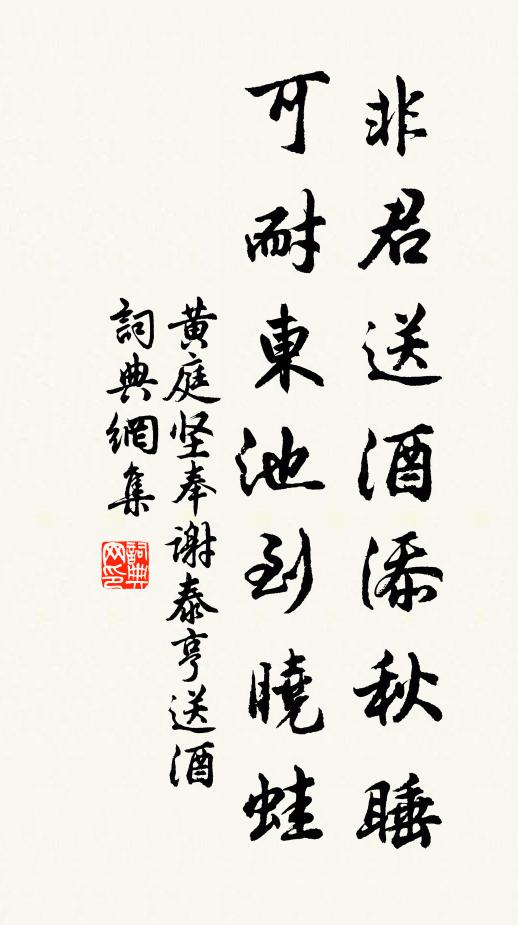 非君送酒添秋睡
可耐東池到曉蛙
黄庭坚奉谢泰亨送酒
詞典網集
詞典网印